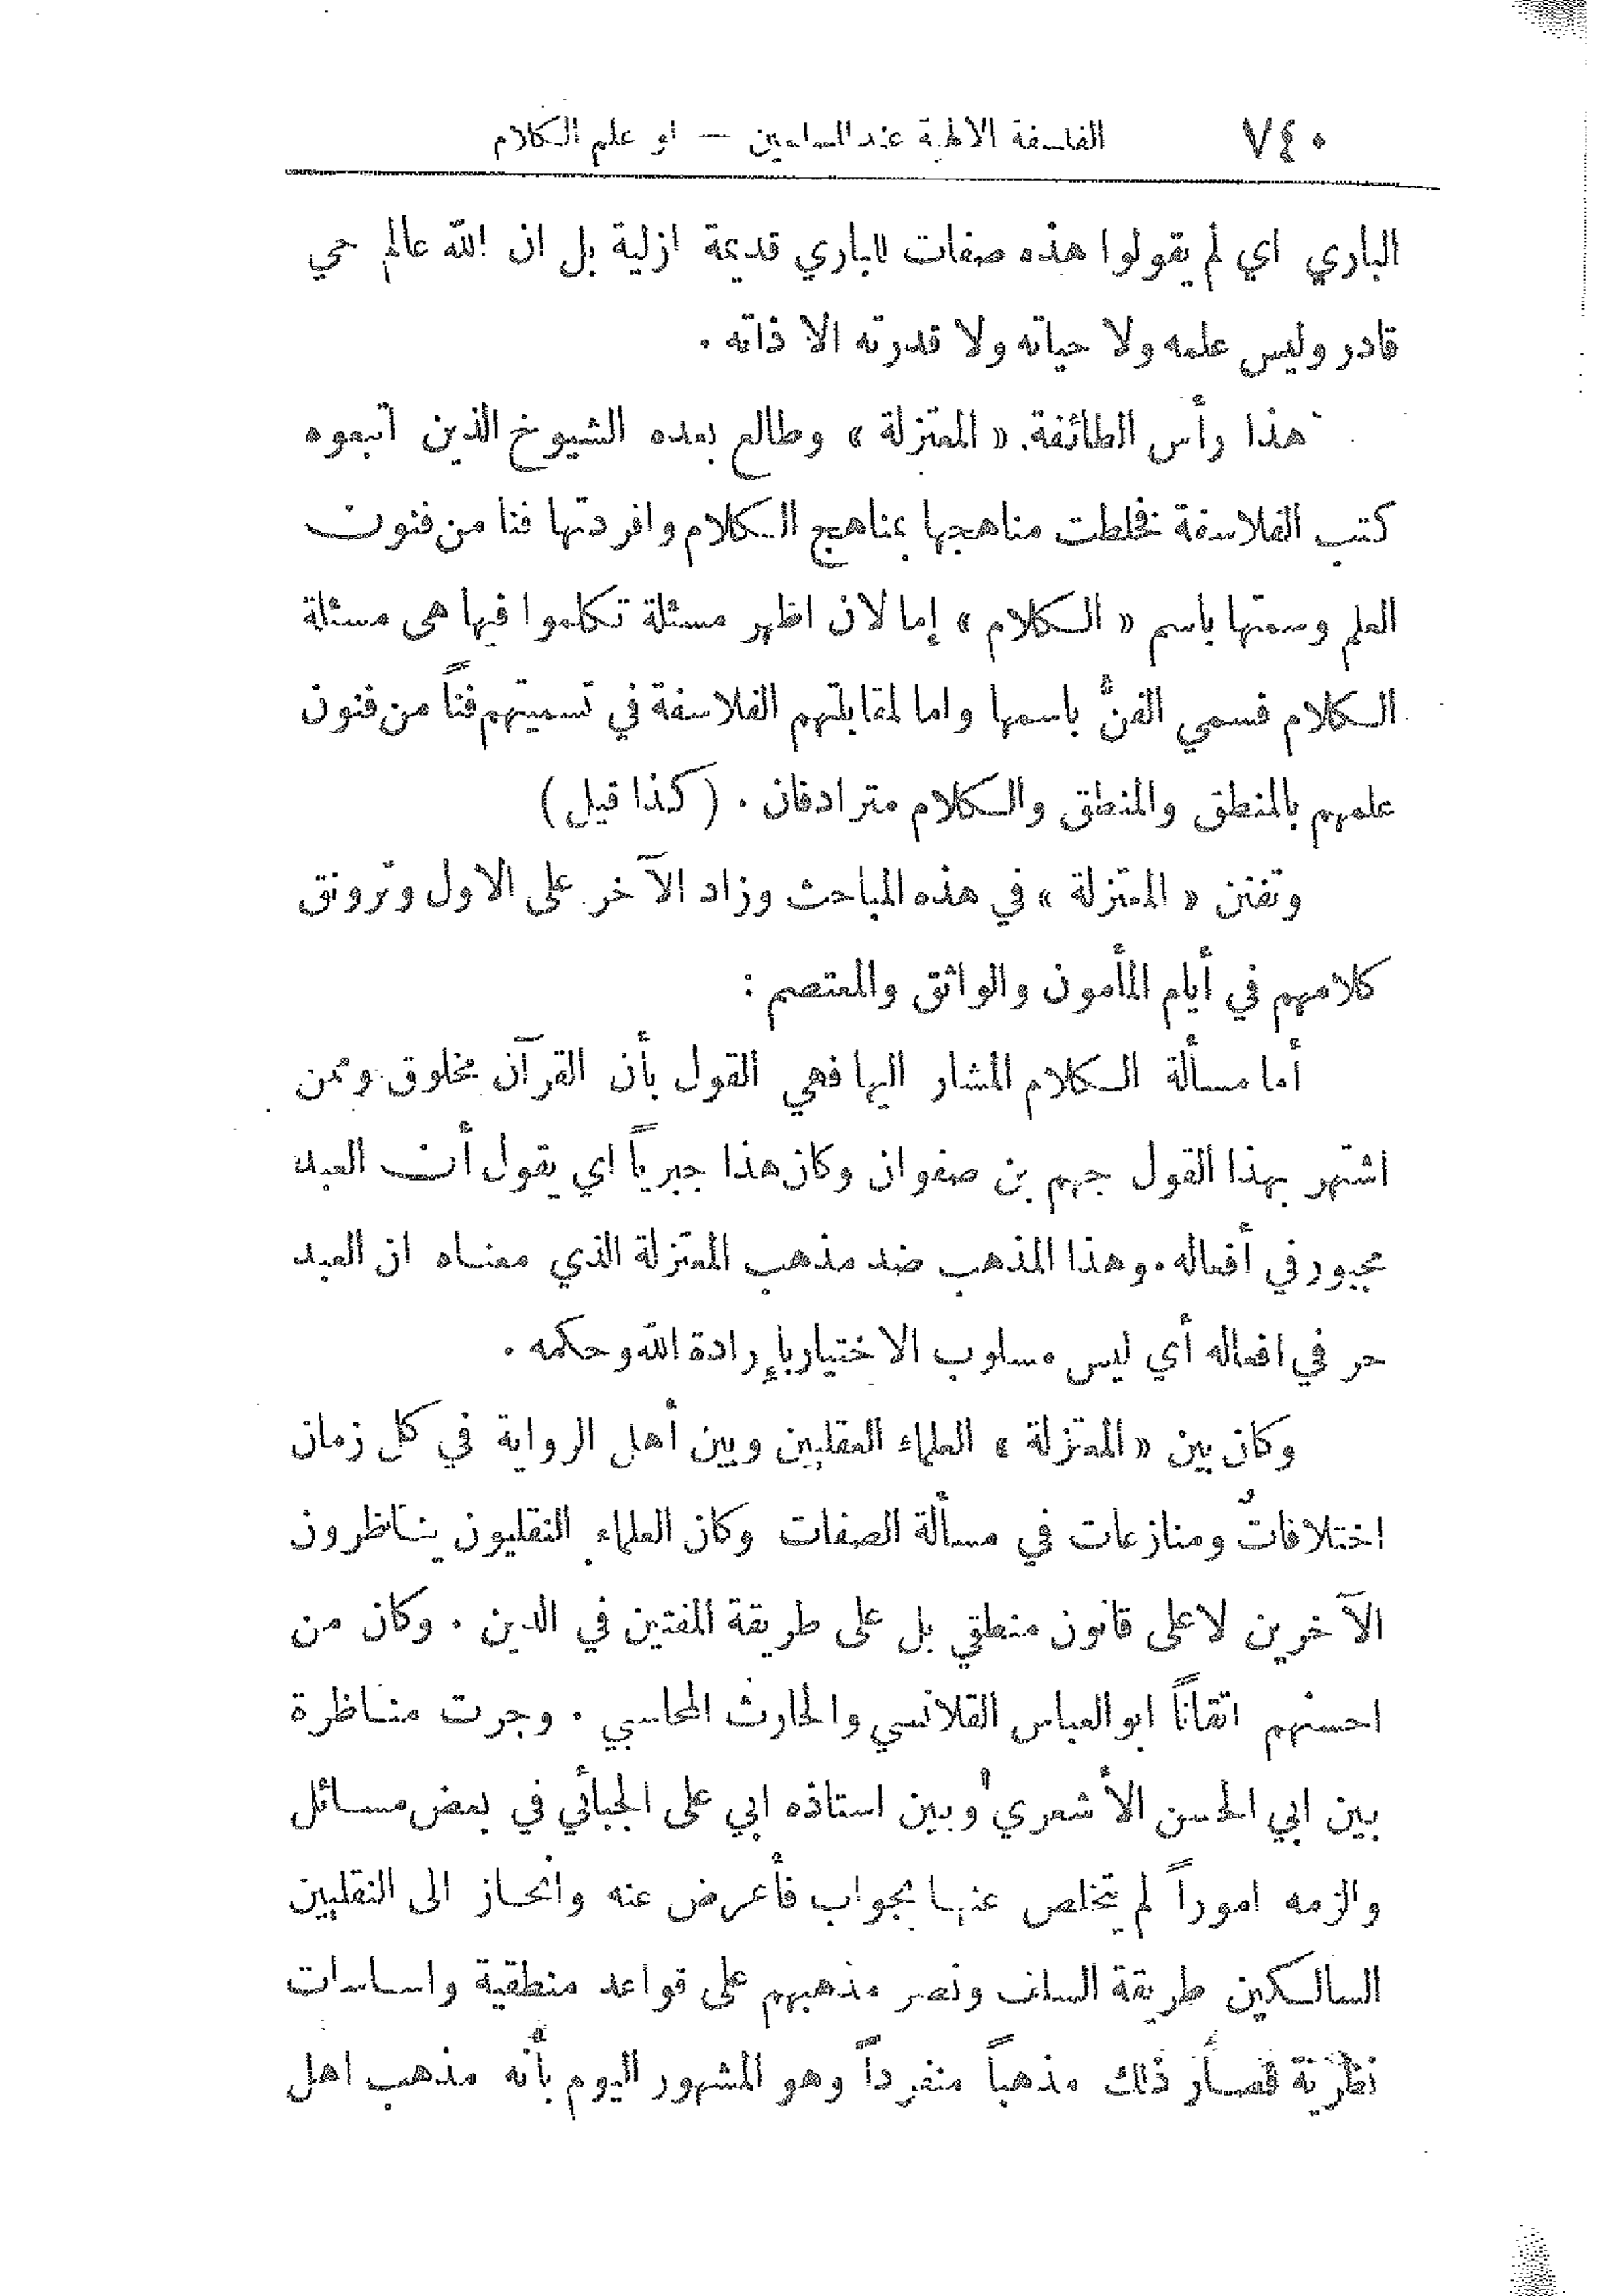 ٧٤٠ الفلسفة الالهية عند المسلمين — او علم الكلام
الباري اي لم يقولوا هذه صفات للباري قديمة ازلية بل ان الله عالم حي
قادر وليس علمه ولا حياته ولا قدرته الا ذاته .
هذا رأس الطائفة « المعتزلة » وطالع بعده الشيوخ الذين اتبعوه
كتب الفلاسفة فخلطت مناهجها بمناهج الكلام وافردتها فنا من فنون
العلم وسمتها باسم « الكلام » إما لان اظهر مسئلة تكلموا فيها هى مسئلة
الكلام فسمي الفنُّ باسمها واما لمقابلتهم الفلاسفة في تسميتهم فناً من فنون
علمهم بالمنطق والمنطق والكلام مترادفان . ( كذا قيل )
وتفنن « المعتزلة » في هذه المباحث وزاد الآخر على الاول وترونق
كلامهم في أيام المأمون والواثق والمعتصم :
أما مسألة الكلام المشار اليها فهي القول بأن القرآن مخلوق وممن
اشتهر بهذا القول جهم بن صفوان وكان هذا جبرياً اي يقول أن العبد
مجبور في أفعاله . وهذا المذهب ضد مذهب المعتزلة الذي معناه ان العبد
حر في افعاله أي ليس مسلوب الاختيار بإرادة الله وحكمه .
وكان بين « المعتزلة » العلماء العقليين وبين أهل الرواية في كل زمان
اختلافاتٌ ومنازعات في مسألة الصفات وكان العلماء النقليون يتناظرون
الآخرين لا على قانون منطقي بل على طريقة المفتين في الدين . وكان من
احسنهم اتقاناً ابو العباس القلانسي والحارث المحاسبي . وجرت مناظرة
بين ابي الحسن الأشعري وبين استاذه ابي على الجبائي في بعض مسائل
والزمه اموراً لم يتخلص عنها بجواب فأعرض عنه وانحاز الى النقليين
السالكين طريقة السلف ونصر مذهبهم على قواعد منطقية واساسات
نظرية فصار ذلك مذهباً منفرداً وهو المشهور اليوم بأنه مذهب اهل